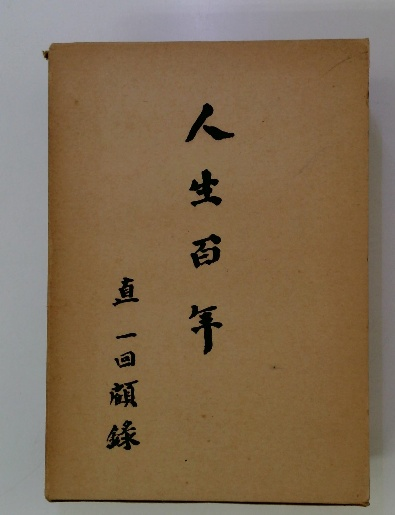 人生百年
直一回顧録